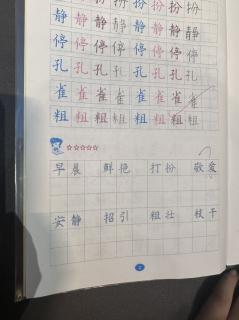 扮 扮 扮 扮 扮 扮 扮
静 静 静 静 静 静 静
停 停 停 停 停 停 停
孔 孔 孔 孔 孔 孔 孔
雀 雀 雀 雀 雀 雀 雀
粗 粗 粗 粗 粗 粗 粗
☆☆☆☆☆
早晨 鲜艳 打扮 敬爱
安静 招引 粗壮 枝干
2